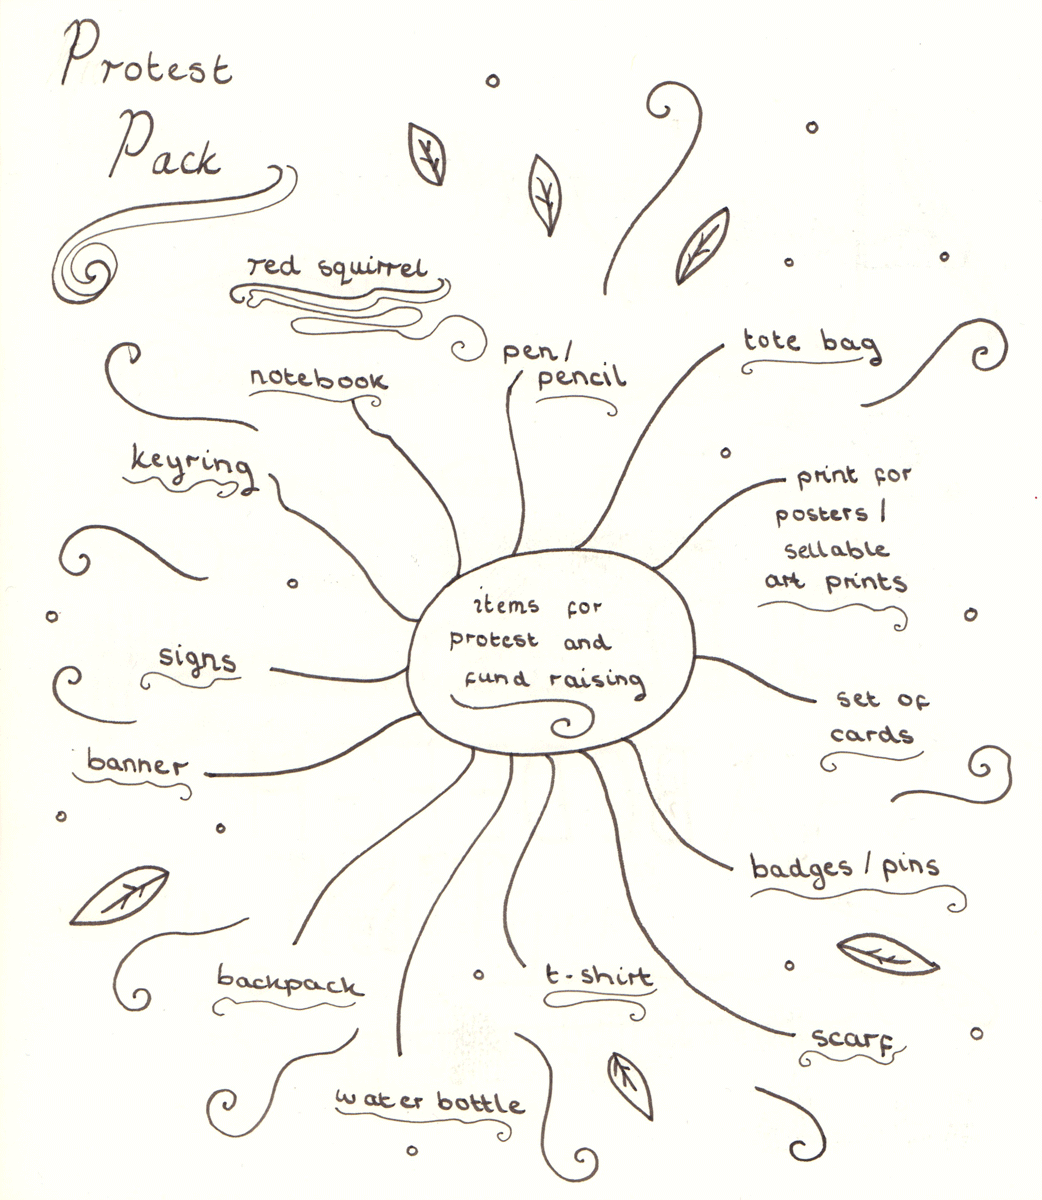 Protest
Pack
red squirrel
notebook
pen/
pencil
tote bag
keyring
print for
posters /
sellable
art prints
items for
protest and
fund raising
signs
set of
cards
banner
badges / pins
backpack
t-shirt
scarf
water bottle